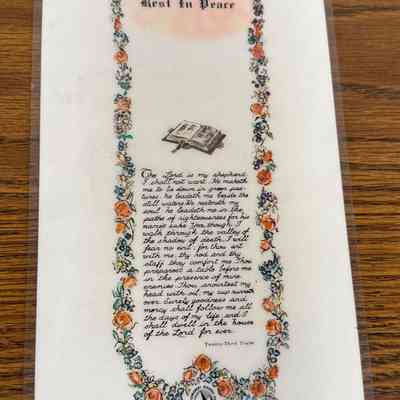 Rest In Peace
The Lord is my shepherd;
I shall not want. He maketh
me to lie down in green pas-
tures: he leadeth me beside the
still waters. He restoreth my
soul: he leadeth me in the
paths of righteousness for his
name's sake. Yea, though I
walk through the valley of
the shadow of death, I will
fear no evil: for thou art
with me; thy rod and thy
staff they comfort me. Thou
preparest a table before me
in the presence of mine
enemies: Thou anointest my
head with oil; my cup runneth
over. Surely goodness and
mercy shall follow me all
the days of my life: and I
shall dwell in the house
of the Lord for ever.
Twenty-Third Psalm